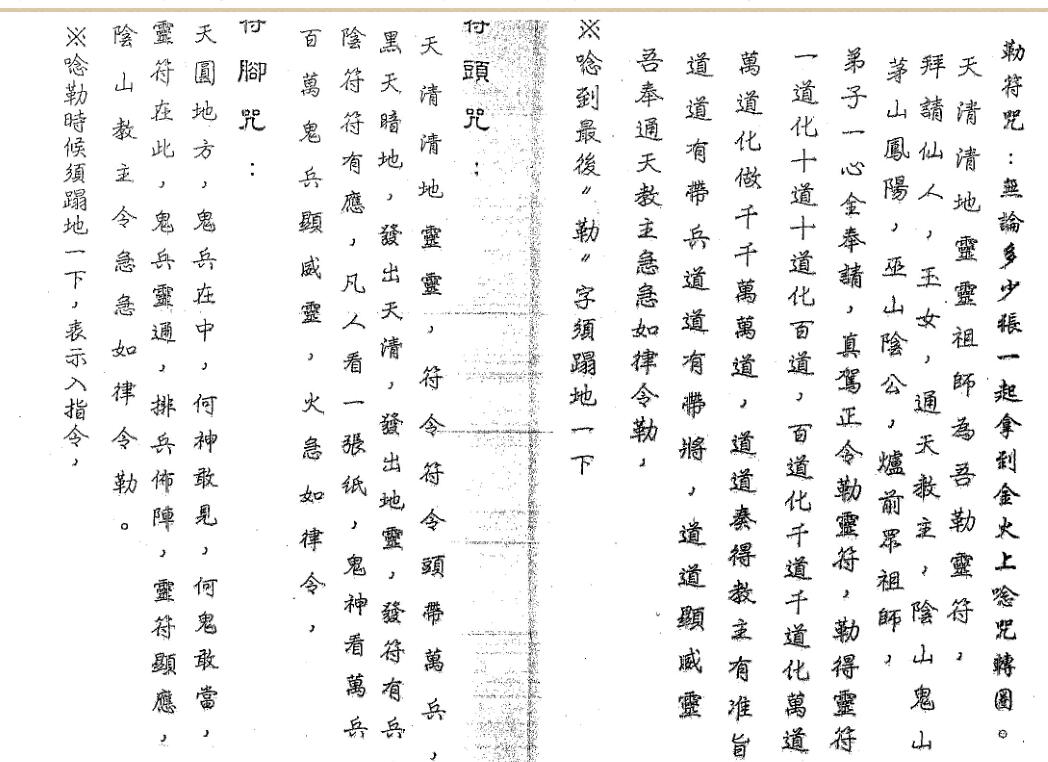 勅符咒：無論多少張一起拿到金火上唸咒轉圖。
天清清地靈靈祖師為吾勒靈符，
拜請仙人，玉女，通天教主，陰山鬼山
茅山鳳陽，巫山陰公，爐前眾祖師，
弟子一心金奉請，真駕正令勒靈符，勒得靈符
一道化十道十道化百道，百道化千道千道化萬道
萬道化做千千萬萬道，道道奏得教主有准旨
道道有帶兵道道有帶將，道道顯威靈
吾奉通天教主急急如律令勒，
※唸到最後〃勒〃字須蹋地一下
符頭咒：
天清清地靈靈，符令符令頭帶萬兵，
黑天暗地，發出天清，發出地靈，發符有兵
陰符符有應，凡人看一張紙，鬼神看萬兵
百萬鬼兵顯威靈，火急如律令，
符腳咒：
天圓地方，鬼兵在中，何神敢見，何鬼敢當，
靈符在此，鬼兵靈通，排兵佈陣，靈符顯應，
陰山教主令急急如律令勒。
※唸勒時候須蹋地一下，表示入指令，